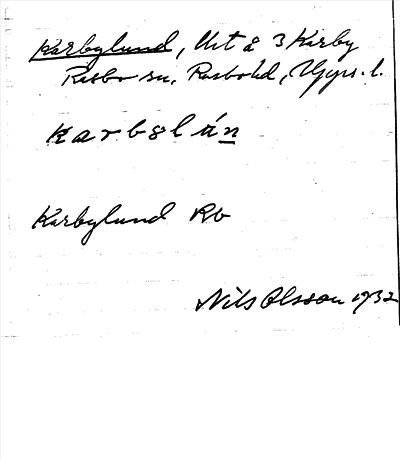 Karbylund, Utt å 3 Karby
Rasbo sn, Rasbo hd, Upps. l.
karbslán
Karbylund Rb
Nils Olsson 1932